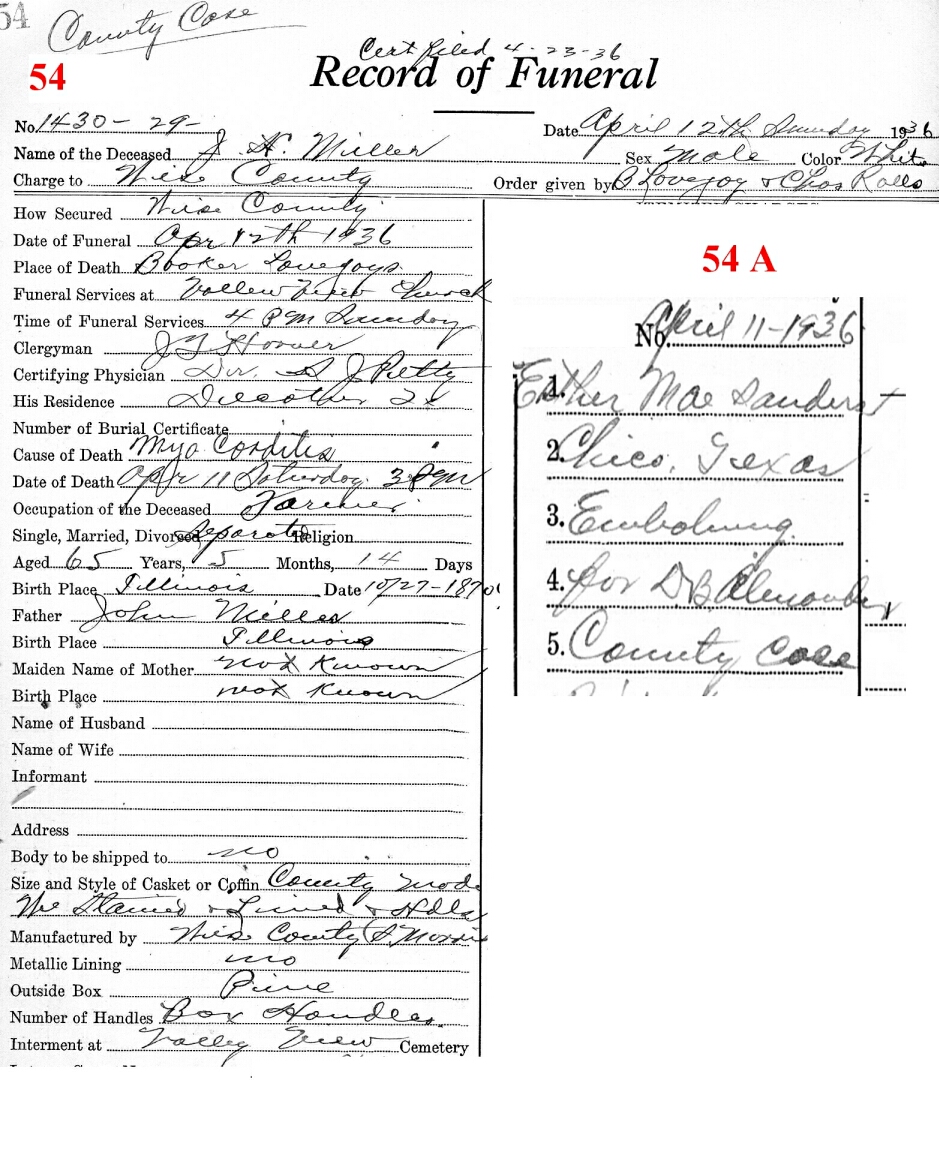 54
County Case
Cert filed 4-23-36
54
Record of Funeral
No. 1430-29-
Date April 12th Sunday 1936
Name of the Deceased J. H. Miller
Sex Male Color White
Charge to Wise County
Order given by B Lovejoy & Chas Ralls
How Secured Wise County
Date of Funeral Apr 12th 1936
Place of Death Booker Lovejoys
Funeral Services at Valley View Church
Time of Funeral Services 4 P.M Sunday
Clergyman J T Hoover
Certifying Physician Dr. S J Petty
His Residence Decatur Tx
Number of Burial Certificate
Cause of Death Myo Corditis
Date of Death Apr 11 Saturday 3 P M
Occupation of the Deceased Farmer
Single, Married, Divorced Separated Religion
Aged 65 Years, 5 Months, 14 Days
Birth Place Illinois Date 10/27-1870
Father John Miller
Birth Place Illinois
Maiden Name of Mother not Known
Birth Place not Known
Name of Husband
Name of Wife
Informant
Address
Body to be shipped to no
Size and Style of Casket or Coffin County Made
We Stained & Lined & Hdls
Manufactured by Wise County S. Morris
Metallic Lining no
Outside Box Pine
Number of Handles Box Handles
Interment at Valley View Cemetery
54 A
No. April 11-1936
1. Esther Mae Sanders
2. Chico, Texas
3. Embalming
4. for D B
5. County Case